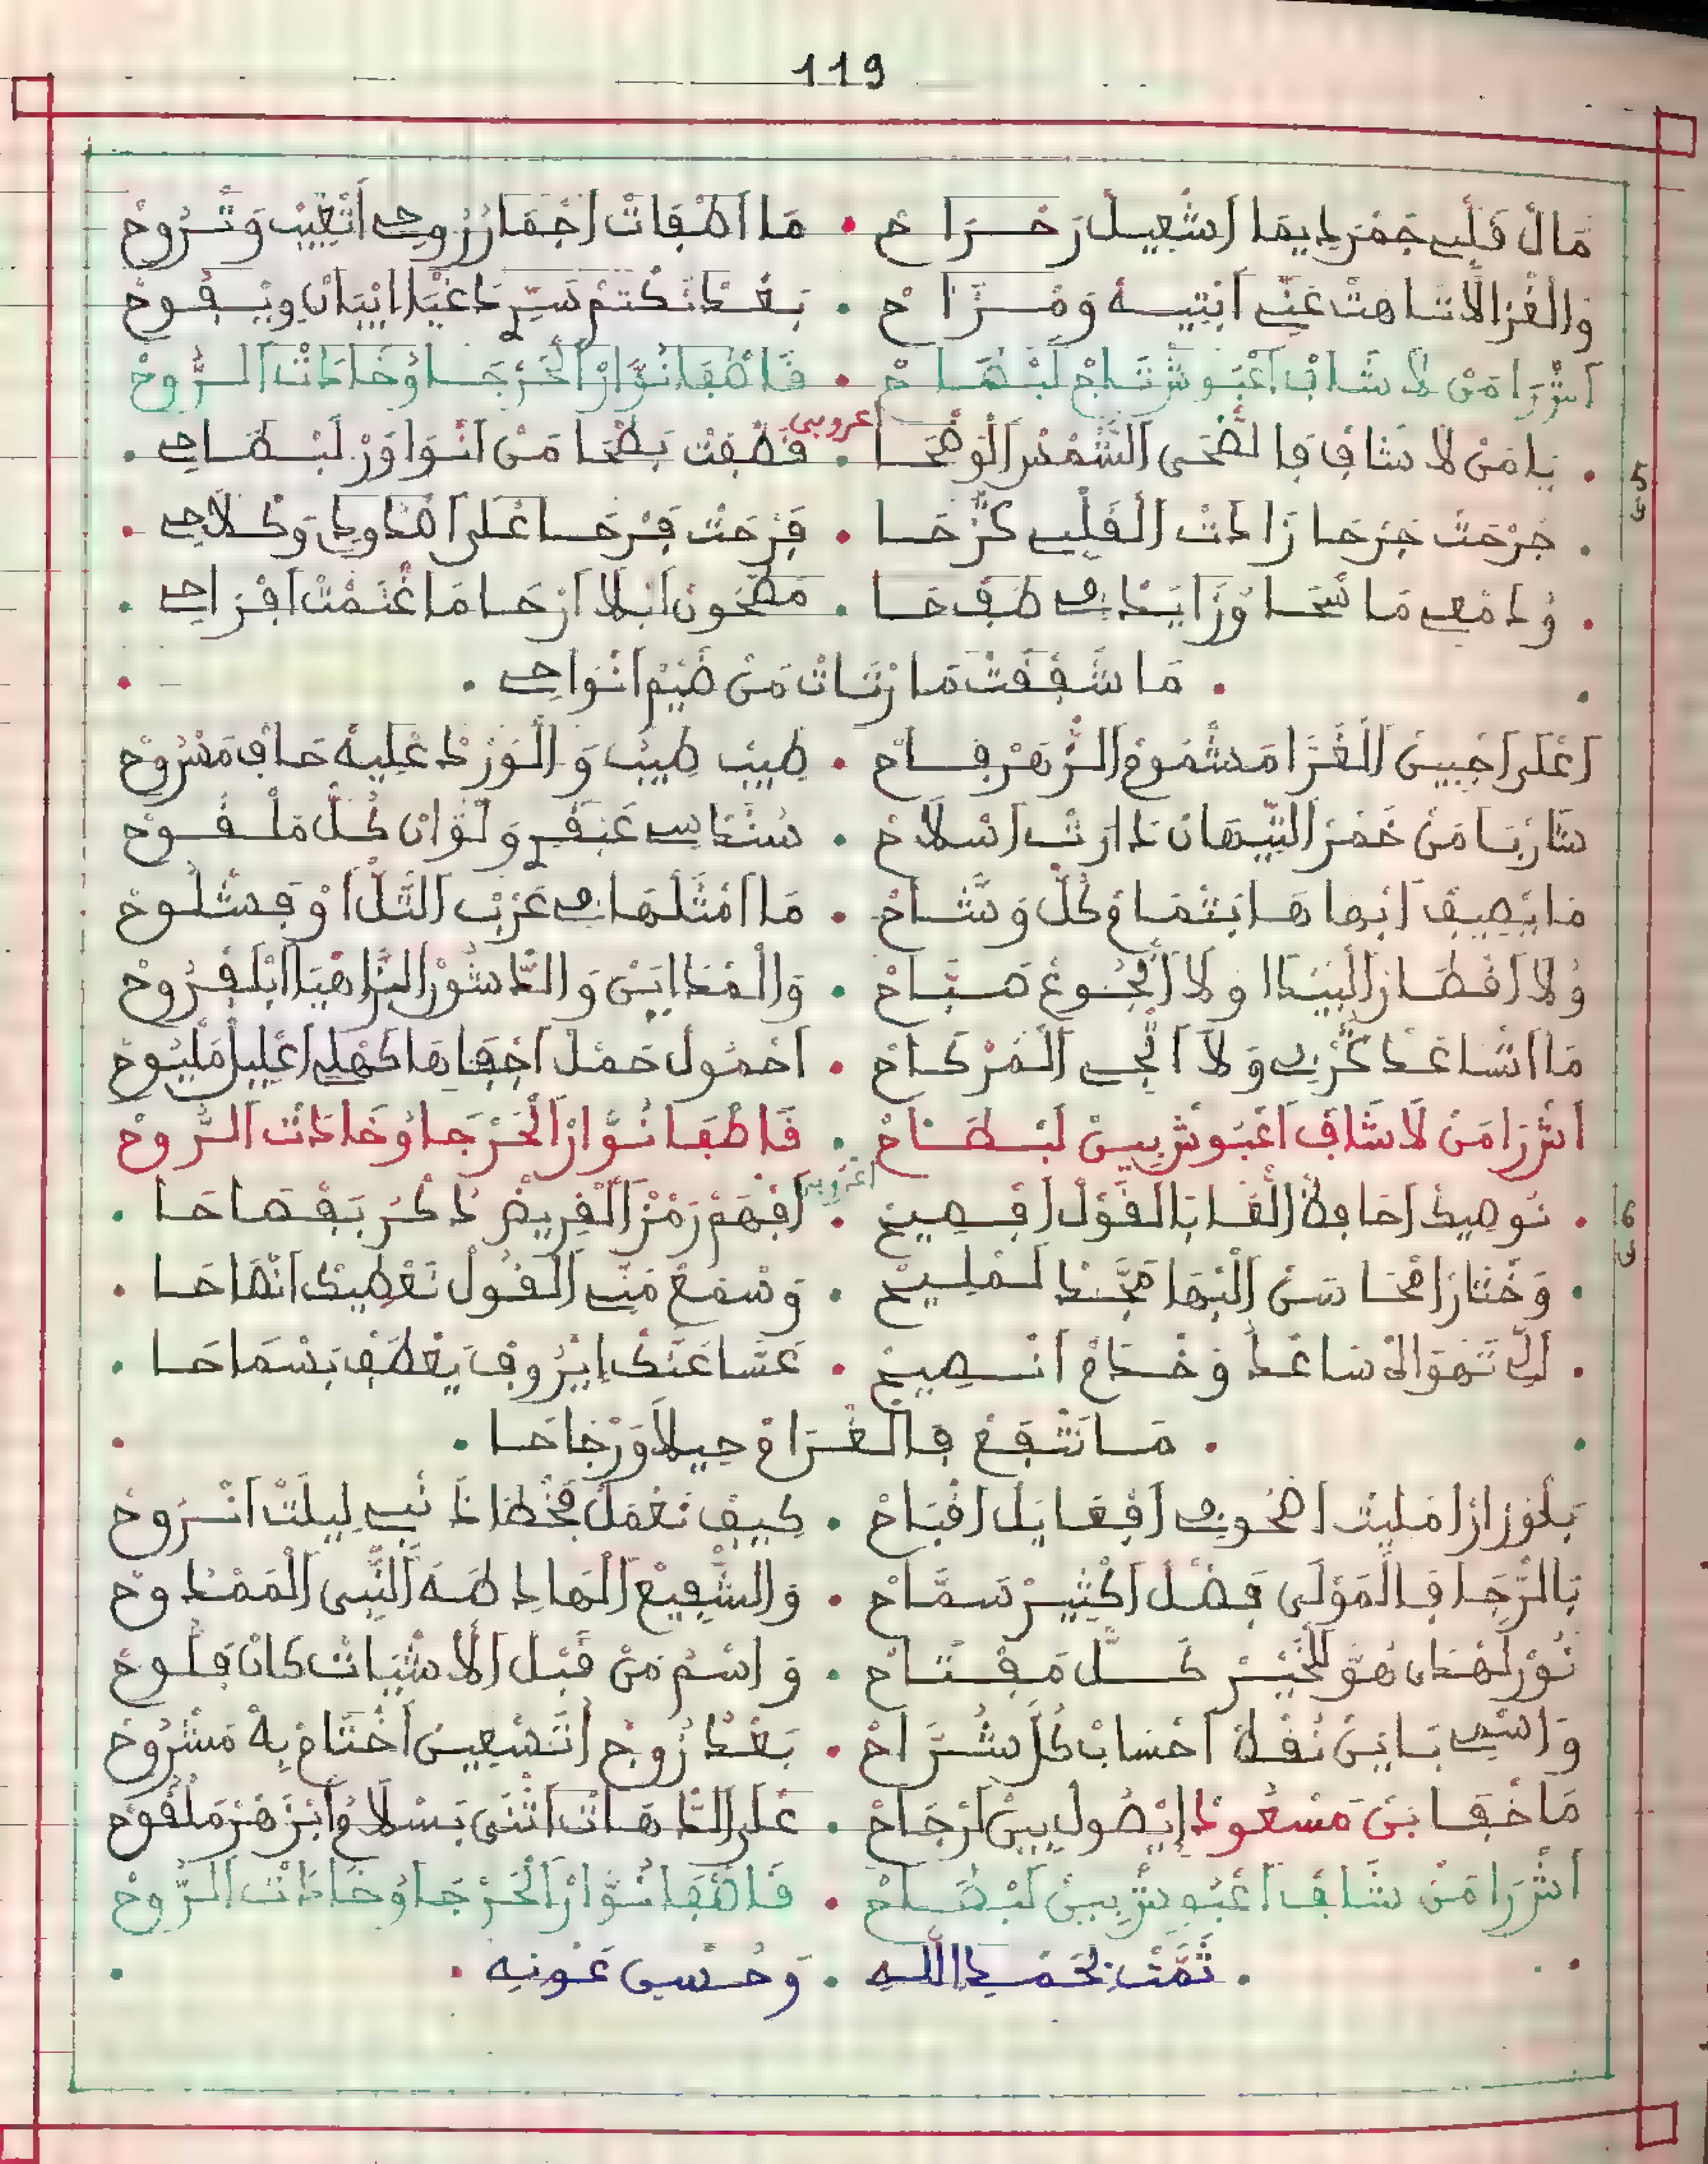 119
مَالْ قَلْبِي جَمْرَ دِيمَا اشْعِيلْ رَحْرَاحْ • مَا اطْفَاتْ اجْمَارْ رُوحِي اتْغِيبْ وَتْرُوحْ
وَالْغْزَالَا تَاهتْ عَنِّي ابْتِيهْ وَمْزَاحْ • بَعْدْ نَكْتَمْ سَرِّي دَغْيَا ايْبَانْ وِيْفُوحْ
اشْرَا مَنْ لَا شَافْ اعْبُوش تَاجْ لَبْطَاحْ • قَاطْفَا نُوَّارْ الْحَرْجَا وُخَادَتْ الرُّوحْ
اعروبي
5 يَا مَنْ لَا شَافْ فَالضْحَى الشَّمْسْ الْوَضْحَا • قَطْفَتْ بَطْحَا مَنْ انْوَاوَرْ لَبْطَاحِي
جَرْحَتْ جَرْحَا زَادَتْ الْقَلْبِي كَرْحَا • فَرْحَتْ فَرْحَا عْلَى امْدَاوِي وَكْلَاحِي
وُدَمْعِي مَا سْحَا وُزَايَدْ فِي طَفْحَا • مَطْحُونْ ابْلَا ارْحَا مَا غْنَمْتْ افْرَاحِي
مَا شَفْقَتْ مَا رْتَاتْ مَنْ ضَيْمْ انْوَاحِي
اعْلَى اجْبِينْ الْغْزَا مَشْمُومْ الزْهَرْ فَاحْ • طِيبْ طِيبْ وَالْوَرْدْ عْلِيهْ حَافْ مَسْرُوحْ
شَارْبَا مَنْ خَمْرْ التِّيهَانْ دَارَتْ اسْلَاحْ • سُنْدَاسِي عَبْقَرِي وَلْوَانْ كُلّْ مَلْقُوحْ
مَا يْصِيفْ ابْهَاهَا بَتْمَامْ كُلّْ وَشَّاحْ • مَا امْثَلْهَا فِي عَرْبْ التَّلّْ اوْ فَمْشْلُوحْ
وُلَا اقْطَارْ الْبَيْدَا وَلَا انْجُوعْ صَبَّاحْ • وَالْمْدَايَنْ وَالدَّاشُورْ الزَّاهْيَا ابْلَفْرُوحْ
مَا اشَاعَدْ عُزْبِي وَلَا اتْجِي الْمَرْكَاحْ • احْمُولْ حَمْلْ اجْفَاهَا كَهْلِي اعْلِيلْ مَلْيُوحْ
اشْرَا مَنْ لَا شَافْ اعْبُوش بِينْ لَبْطَاحْ • قَاطْفَا نُوَّارْ الْحَرْجَا وُخَادَتْ الرُّوحْ
اعروبي
6 نُوصِيكْ احَافِظْ الْغَا بَالْقَوْلْ افْصِيحْ • افْهَمْ رَمْزْ الْقْرِيضْ ذَكْرُ بَفْصَاحَا
وَخْتَارْ امْحَاسَنْ الْبْهَا مَجَّدْ لَمْلِيحْ • وَسْمَعْ مَنِّي الْقُولْ نَعْطِيكْ انْصَاحَا
الِّي تَهْوَاهْ سَاعْدُ وَخْدَمْ انْصِيحْ • عَسَّا عَنَّكْ ايْرُوفْ يَعْطَفْ بَسْمَاحَا
مَا تَنْفَعْ فَالْغْرَامْ حِيلَا وَرْجَاحَا
بَلُوزَارْ امْلِيتْ اصْحُوفِي افْعَايَلْ اقْبَاحْ • كِيفْ نَعْمَلْ فَخْطَايَا بِي لِيلَتْ انْرُوحْ
بَالرّْجَا فَالْمَوْلَى فَضْلْ اكْثِيرْ سَمَّاحْ • وَالشّْفِيعْ الْهَادِي طَهَ النّْبِي الْمَمْدُوحْ
نُورْ لَهْدَى هُوَّ لِلْخَيْرْ كَلّْ مَفْتَاحْ • وَاسْمُ مَنْ قَبْلْ الْاشْيَاتْ كَانْ فَلُوحْ
وَاسْمِي بَايَنْ نُقْطَ احْسَابْ كُلّْ شُرَّاحْ • بَعْدْ زُوجْ اتَّسْعِينْ اخْتَامْ بِهْ مَشْرُوحْ
مَا خْفَا بَنْ مَسْعُودْ ايْصُولْ بِينْ لَرْجَاحْ • عْلَى الدَّاهَاتْ اثْنَى بَسْلَامْ وَابْزَهْرْ مَلْقُوحْ
اشْرَا مَنْ شَافْ اعْبُوش بِينْ لَبْطَاحْ • قَاطْفَا نُوَّارْ الْحَرْجَا وُخَادَتْ الرُّوحْ
تَمَّتْ بِحَمْدِ اللَّهِ • وَحُسْنِ عَوْنِهِ